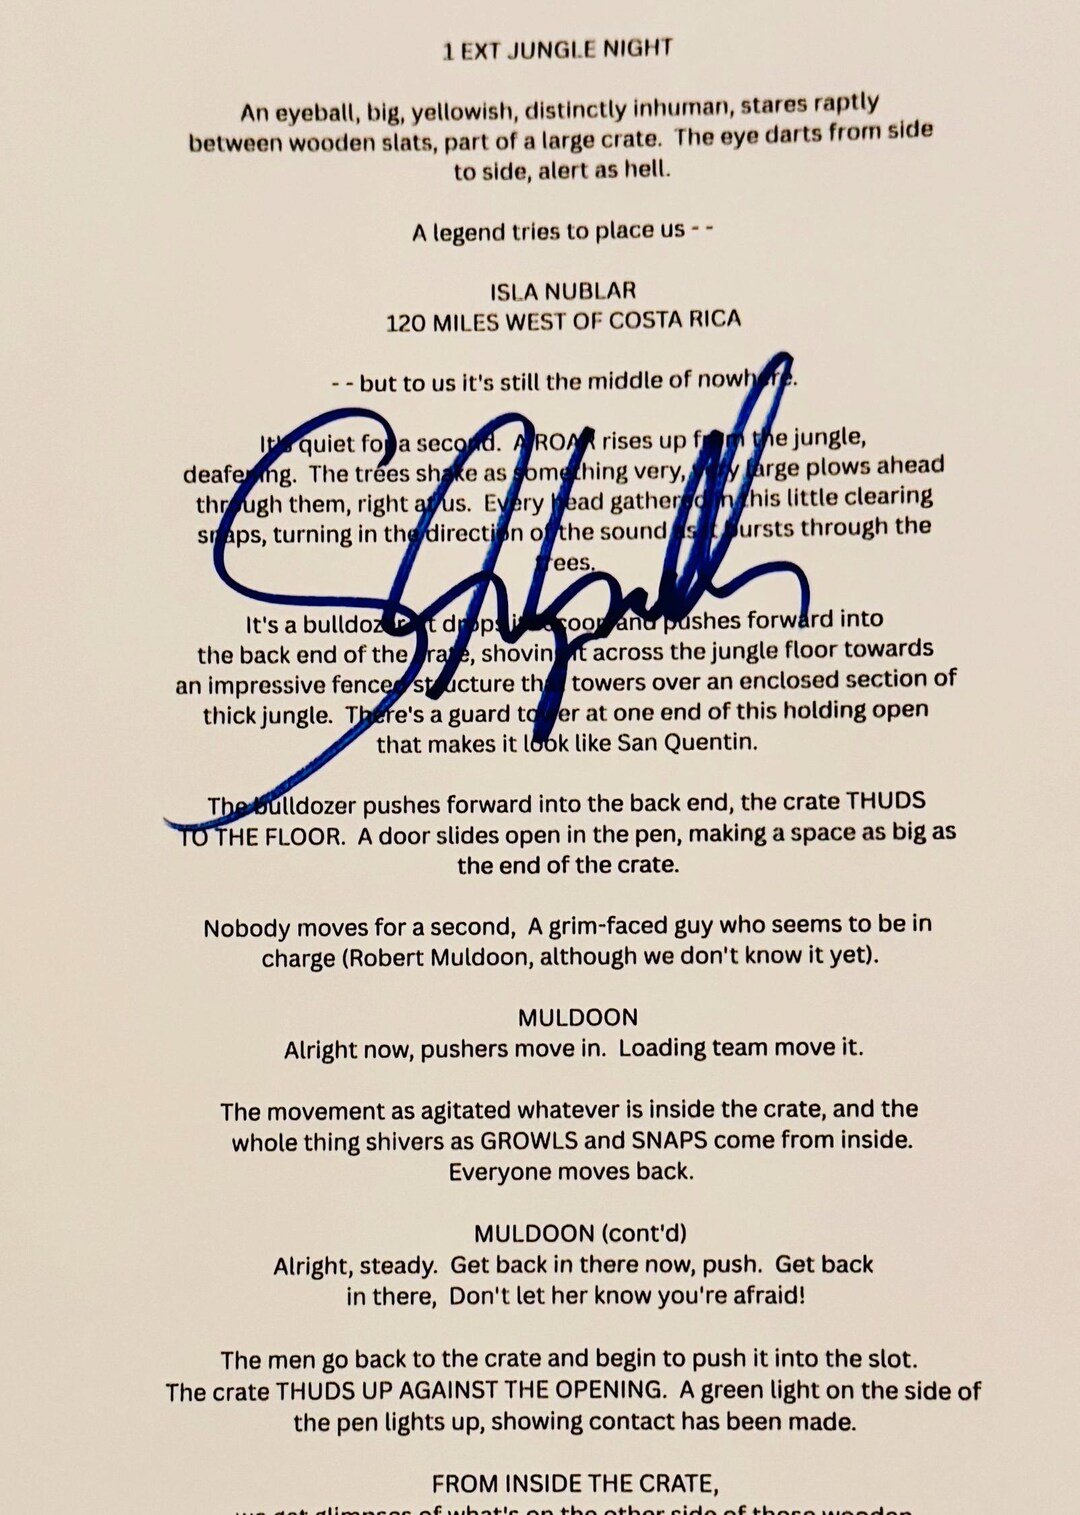 1 EXT JUNGLE NIGHT
An eyeball, big, yellowish, distinctly inhuman, stares raptly
between wooden slats, part of a large crate. The eye darts from side
to side, alert as hell.
A legend tries to place us - -
ISLA NUBLAR
120 MILES WEST OF COSTA RICA
- - but to us it's still the middle of nowhere.
It's quiet for a second. A ROAR rises up from the jungle,
deafening. The trees shake as something very, very large plows ahead
through them, right at us. Every head gathered in this little clearing
snaps, turning in the direction of the sound as it bursts through the
trees.
It's a bulldozer. It drops its scoop and pushes forward into
the back end of the crate, shoving it across the jungle floor towards
an impressive fenced structure that towers over an enclosed section of
thick jungle. There's a guard tower at one end of this holding open
that makes it look like San Quentin.
The bulldozer pushes forward into the back end, the crate THUDS
TO THE FLOOR. A door slides open in the pen, making a space as big as
the end of the crate.
Nobody moves for a second, A grim-faced guy who seems to be in
charge (Robert Muldoon, although we don't know it yet).
MULDOON
Alright now, pushers move in. Loading team move it.
The movement as agitated whatever is inside the crate, and the
whole thing shivers as GROWLS and SNAPS come from inside.
Everyone moves back.
MULDOON (cont'd)
Alright, steady. Get back in there now, push. Get back
in there, Don't let her know you're afraid!
The men go back to the crate and begin to push it into the slot.
The crate THUDS UP AGAINST THE OPENING. A green light on the side of
the pen lights up, showing contact has been made.
FROM INSIDE THE CRATE,
we get glimpses of what's on the other side of those wooden